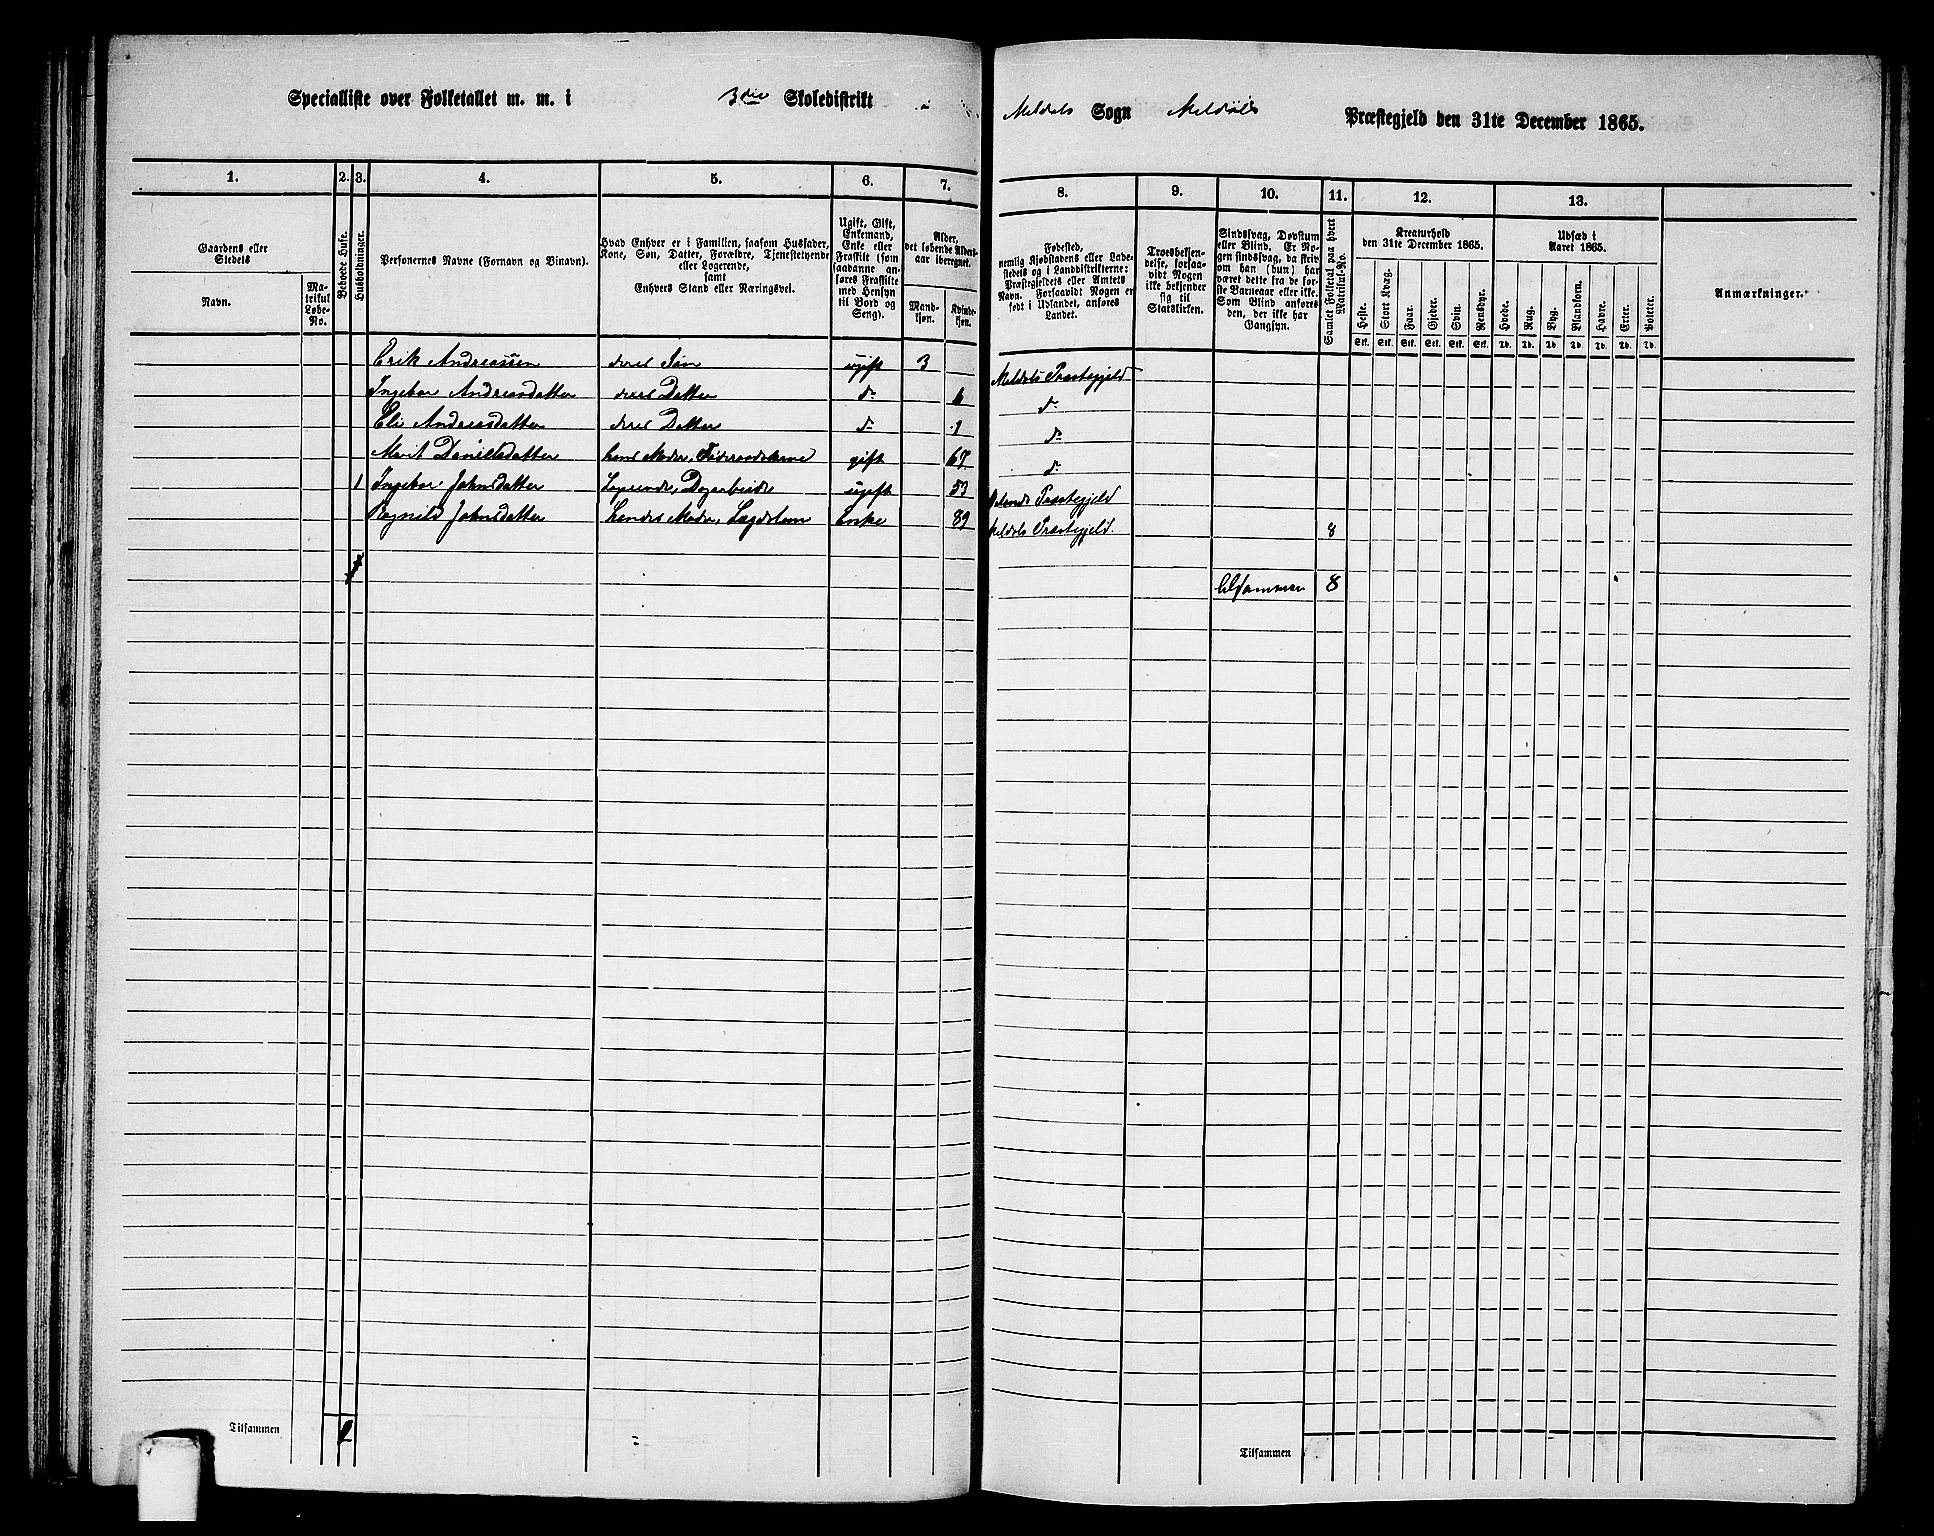 Specialliste over Folketallet m. m. i 3die Skoledistrikt i
Meldals Sogn Meldals Præstegjeld den 31te December 1865.
1. 2. 3. 4. 5. 6. 7.
8. 9. 10. 11. 12. 13.
Gaardens eller Stedets
Navn.
Matrikul Løbe-No.
Beboede Huse.
Husholdninger.
Personernes Navne (Fornavn og Binavn).
Hvad Enhver er i Familien, saasom Husfader, Kone, Søn, Datter, Forældre, Tjenestetyende eller Logerende, samt Enhvers Stand eller Næringsvei.
Ugift, Gift, Enkemand, Enke eller Fraskilt (som saadanne anføres Fraskilte med Hensyn til Bord og Seng).
Alder, det løbende Aldersaar iberegnet.
Mandkjøn.
Kvindekjøn.
Fødested, nemlig Kjøbstadens eller Ladestedets og i Landdistrikterne: Præstegjeldets eller Amtets Navn. Forsaavidt Nogen er født i Udlandet, anføres Landet.
Troesbekjendelse, forsaavidt Nogen ikke bekjender sig til Statskirken.
Sindssvag, Døvstum eller Blind. Er Nogen sindssvag, da skrives om han (hun) har været dette fra de første Barneaar eller ikke. Som Blind anføres den, der ikke har Gangsyn.
Samlet Folketal paa hvert Matrikul-No.
Kreaturhold den 31te December 1865.
Heste. Stort Kvæg. Faar. Gjeder. Svin. Rensdyr.
Stk. Stk. Stk. Stk. Stk. Stk.
Udsæd i Aaret 1865.
Hvede. Rug. Byg. Blandkorn. Havre. Erter. Poteter.
Td. Td. Td. Td. Td. Td. Td.
Anmærkninger.
Erik Andreassen deres Søn ugift 3 Meldals Præstegjeld
Ingebor Andreasdatter deres Datter do 6 do
Eli Andreasdatter deres Datter do 1 do
Marit Danielsdatter hans Moder, Føderaadskone gift 67 do
1 Ingebor Johnsdatter Logerende, ugift 53 Præstegjeld
Ragnild Johnsdatter hendes Moder, Lægdslem Enke 89 Meldals Præstegjeld. 8
Tilsammen 8
Tilsammen
Tilsammen